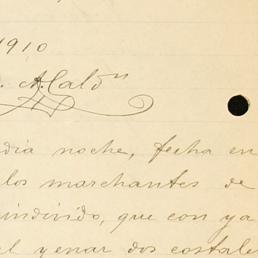 1910
A. Calds
dia noche, fecha en
los marchantes de
individo, que con ya
el y enar dos costale